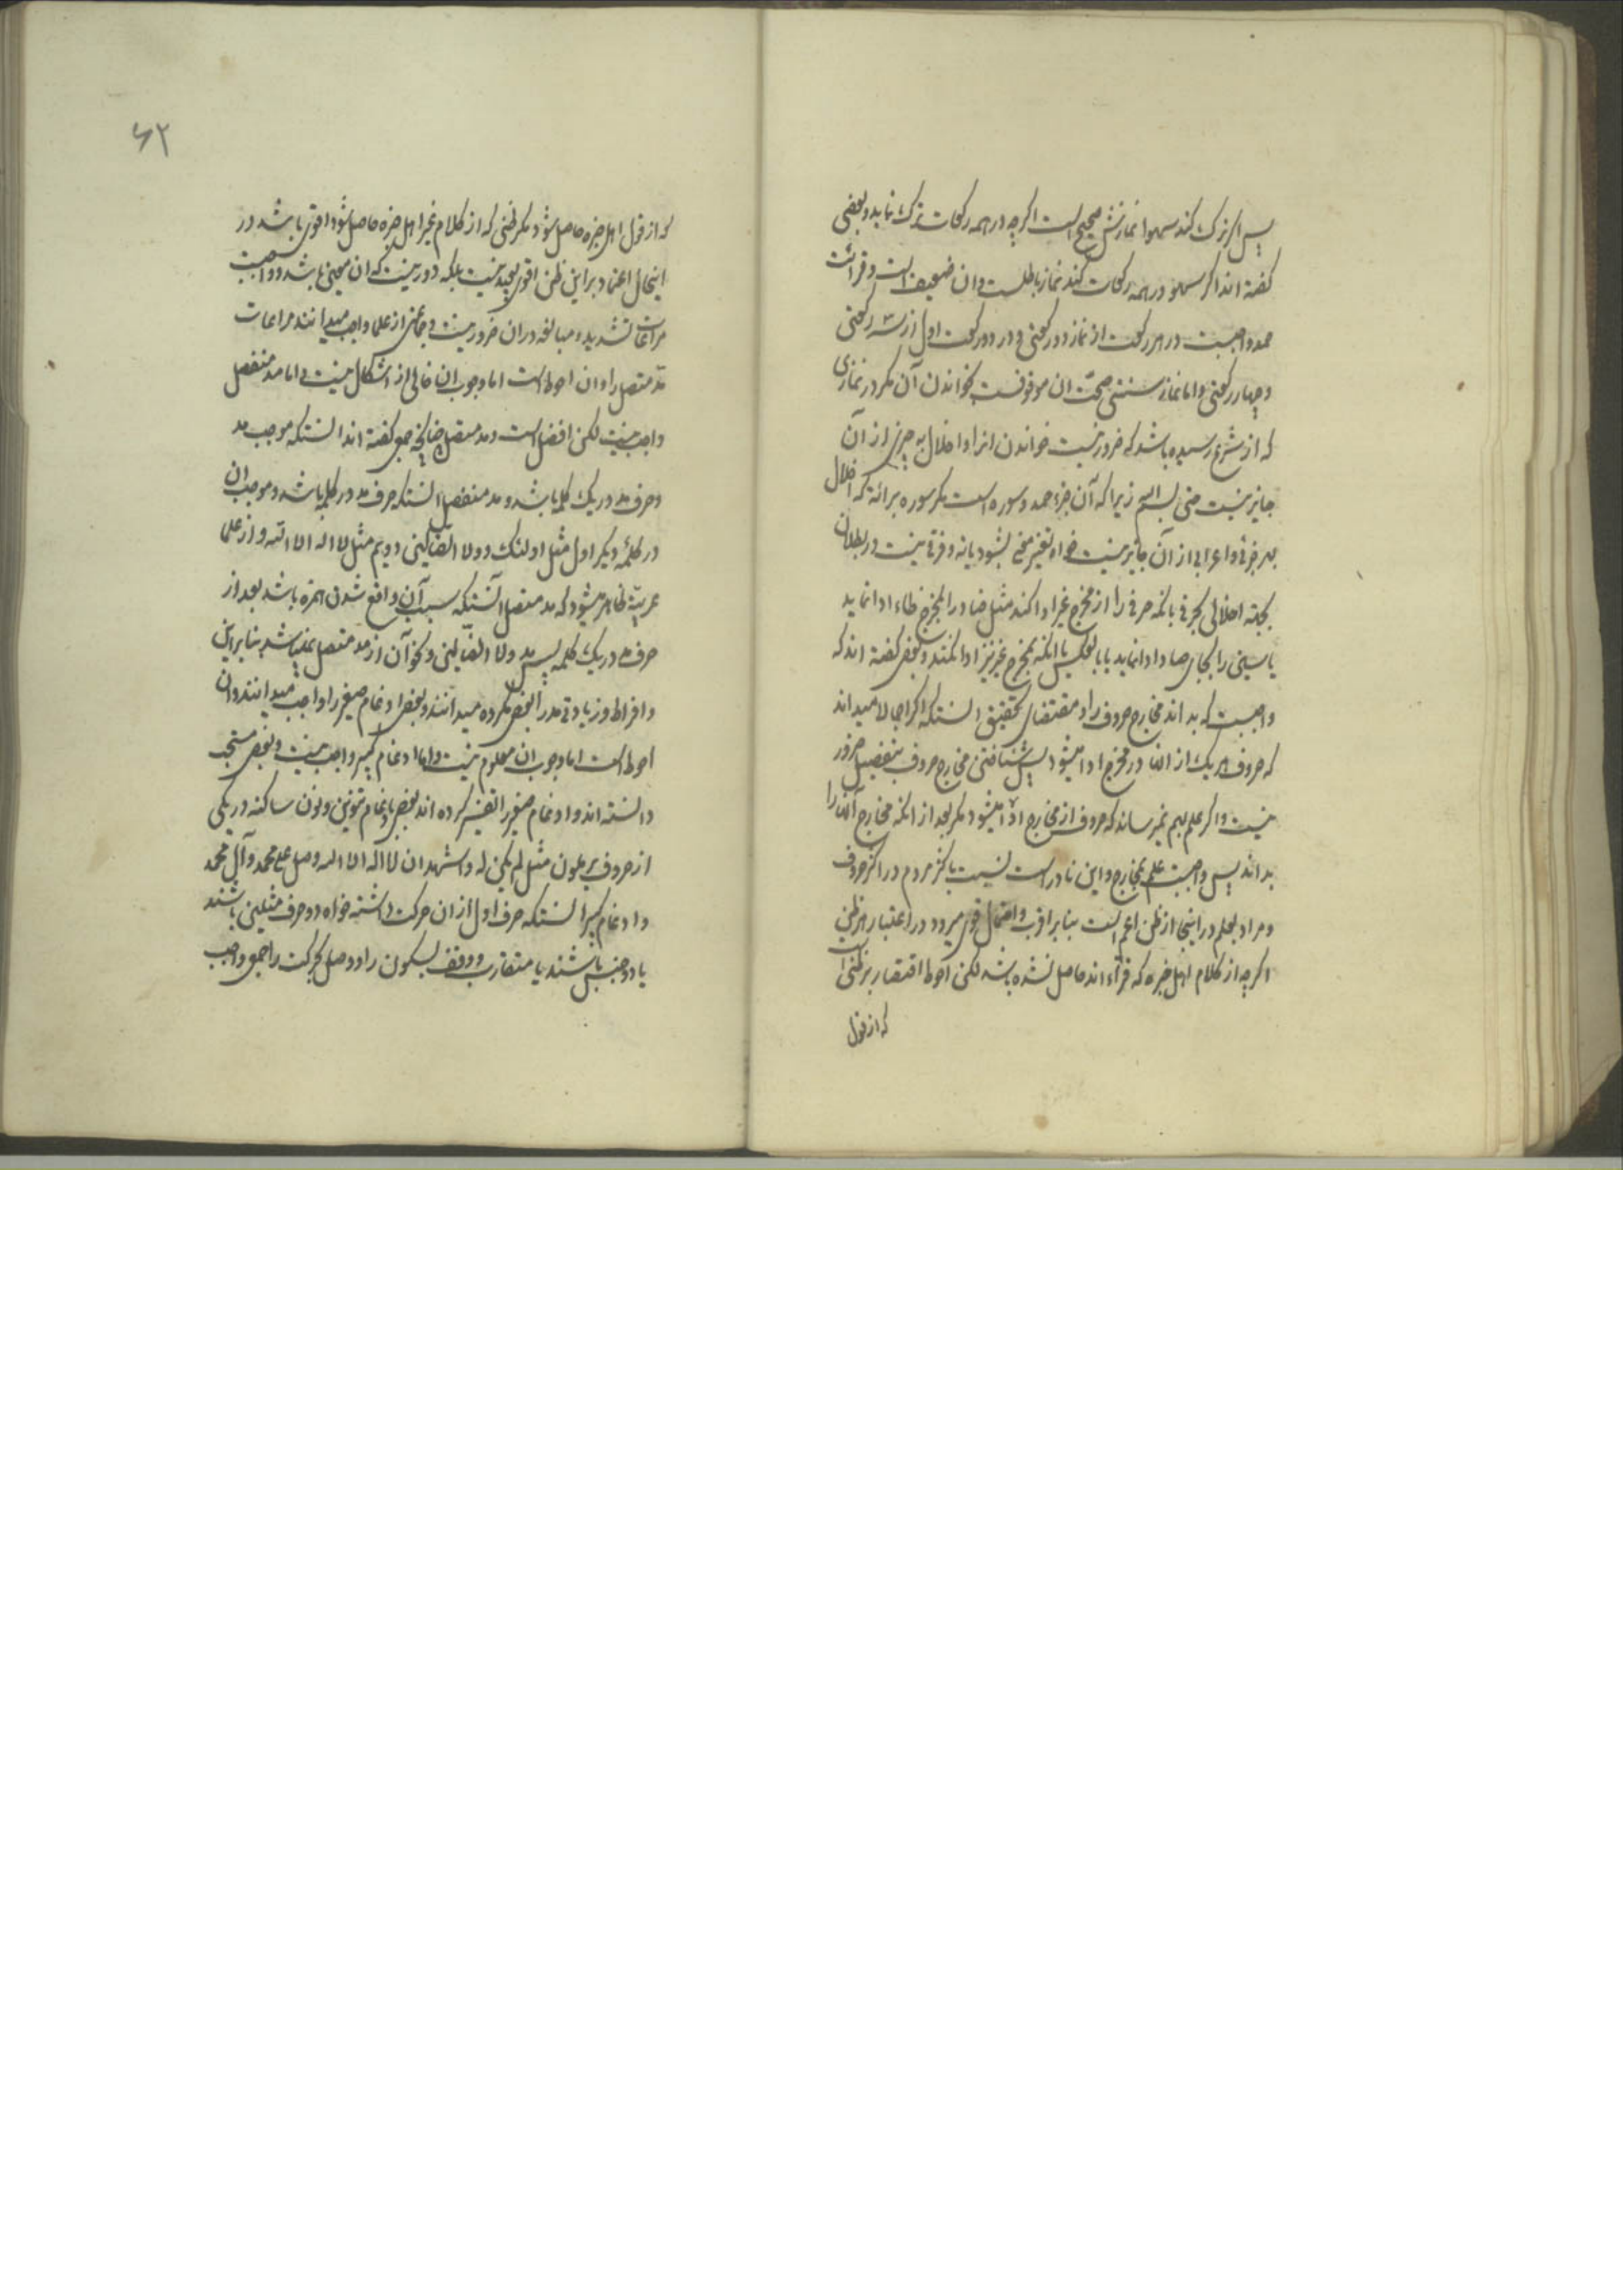 پس اگر ترک کند سهوا نمازش صحیح است اگرچه در همه رکعات ترک نماید و بعضی
گفته اند اگر سهو در همه رکعات کند نماز باطلست و ان ضعیف است و قرائت
حمد واجبست در هر رکعت از نماز دو رکعتی و در دو رکعت اول از سه رکعتی
و چهار رکعتی و اما نماز سنتی صحت ان موقوفست بخواندن آن مگر در نمازی
که از شرع رسیده باشد که ضرور نیست خواندن انرا و اخلال به چیزی از آن
جایز نیست حتی بسم الله زیرا که آن جزء حمد و سوره است مگر سوره برائة که اخلال
بهر حرفی و اعرابی از آن جایز نیست خواه تغییر معنی بشود یا نه و فرقی نیست در بطلان
اخلالی بحرفی بانکه حرفی را از مخرج غیر ادا کند مثل ضاد را بمخرج ظاء ادا نماید
یا سین را بجای صاد ادا نماید یا بالعکس یا انکه بمخرج غیر نیز ادا نکند و بعضی گفته اند که
واجبست که بداند مخارج حروف را و مقتضای تحقیق انستکه اگر اجمالا میداند
که حروف هر یک از انها در مخرج ادا میشود پس شناختن مخارج حروف بتفصیل ضرور
نیست و اگر علم بهم نمیرساند که حروف از مخارج ادا میشود مگر بعد از انکه مخارج آنها را
بداند پس واجبست علم بمخارج و این نادر است نسبت باکثر مردم در اکثر حروف
و مراد بعلم در اینجا از ظن اعم است بنا بر اقرب و احتمال قوی میرود در اعتبار هر ظنی
اگرچه از کلام اهل خبره که قرآء اند حاصل نشده باشد لکن احوط اقتصار بر ظنی است
که از قول
۶۲
که از قول اهل خبره حاصل شود مگر ظنی که از کلام غیر اهل خبره حاصل شود اقوی باشد در
اینحال اعتماد بر این ظن اقوی بعید نیست بلکه دور نیست که ان معین باشد و واجبست
مراعات تشدید و مبالغه در ان ضرور نیست و جماعتی از علما واجب میدانند مراعات
مد متصل را و ان احوط است اما وجوب ان خالی از اشکال نیست و اما مد منفصل
واجب نیست لکن افضل است و مد متصل چنانچه جمعی گفته اند انستکه موجب مد
و حرف مد در یک کلمه باشد و مد منفصل انستکه حرف مد در کلمه باشد و موجب ان
در کلمه دیگر اول مثل اولئک و ولا الضالین و دویم مثل لا اله الا الله و از علما
عربیّة ظاهر میشود که مد متصل انستکه سبب آن واقع شدن همزه باشد بعد از
حرف مد در یک کلمه پس مد ولا الضالین و نحو آن از مد متصل نمیباشد بنابراین
و افراط و زیادتی مد را بعضی مکروه میدانند و بعضی ادغام صغیر را واجب میدانند و ان
احوط است اما وجوب ان معلوم نیست و اما ادغام کبیر واجب نیست و بعضی مستحب
دانسته اند و ادغام صغیر را تفسیر کرده اند بعضی بادغام تنوین و نون ساکنه در یکی
از حروف یرملون مثل لم یکن له و اشهد ان لا اله الا الله و صل علی محمد و آل محمد
و ادغام کبیر انستکه حرف اول از ان حرکت داشته خواه دو حرف مثلین باشند
یا دو جنس باشند یا متقارب و وقف بسکون را و وصل بحرکت را جمعی واجب